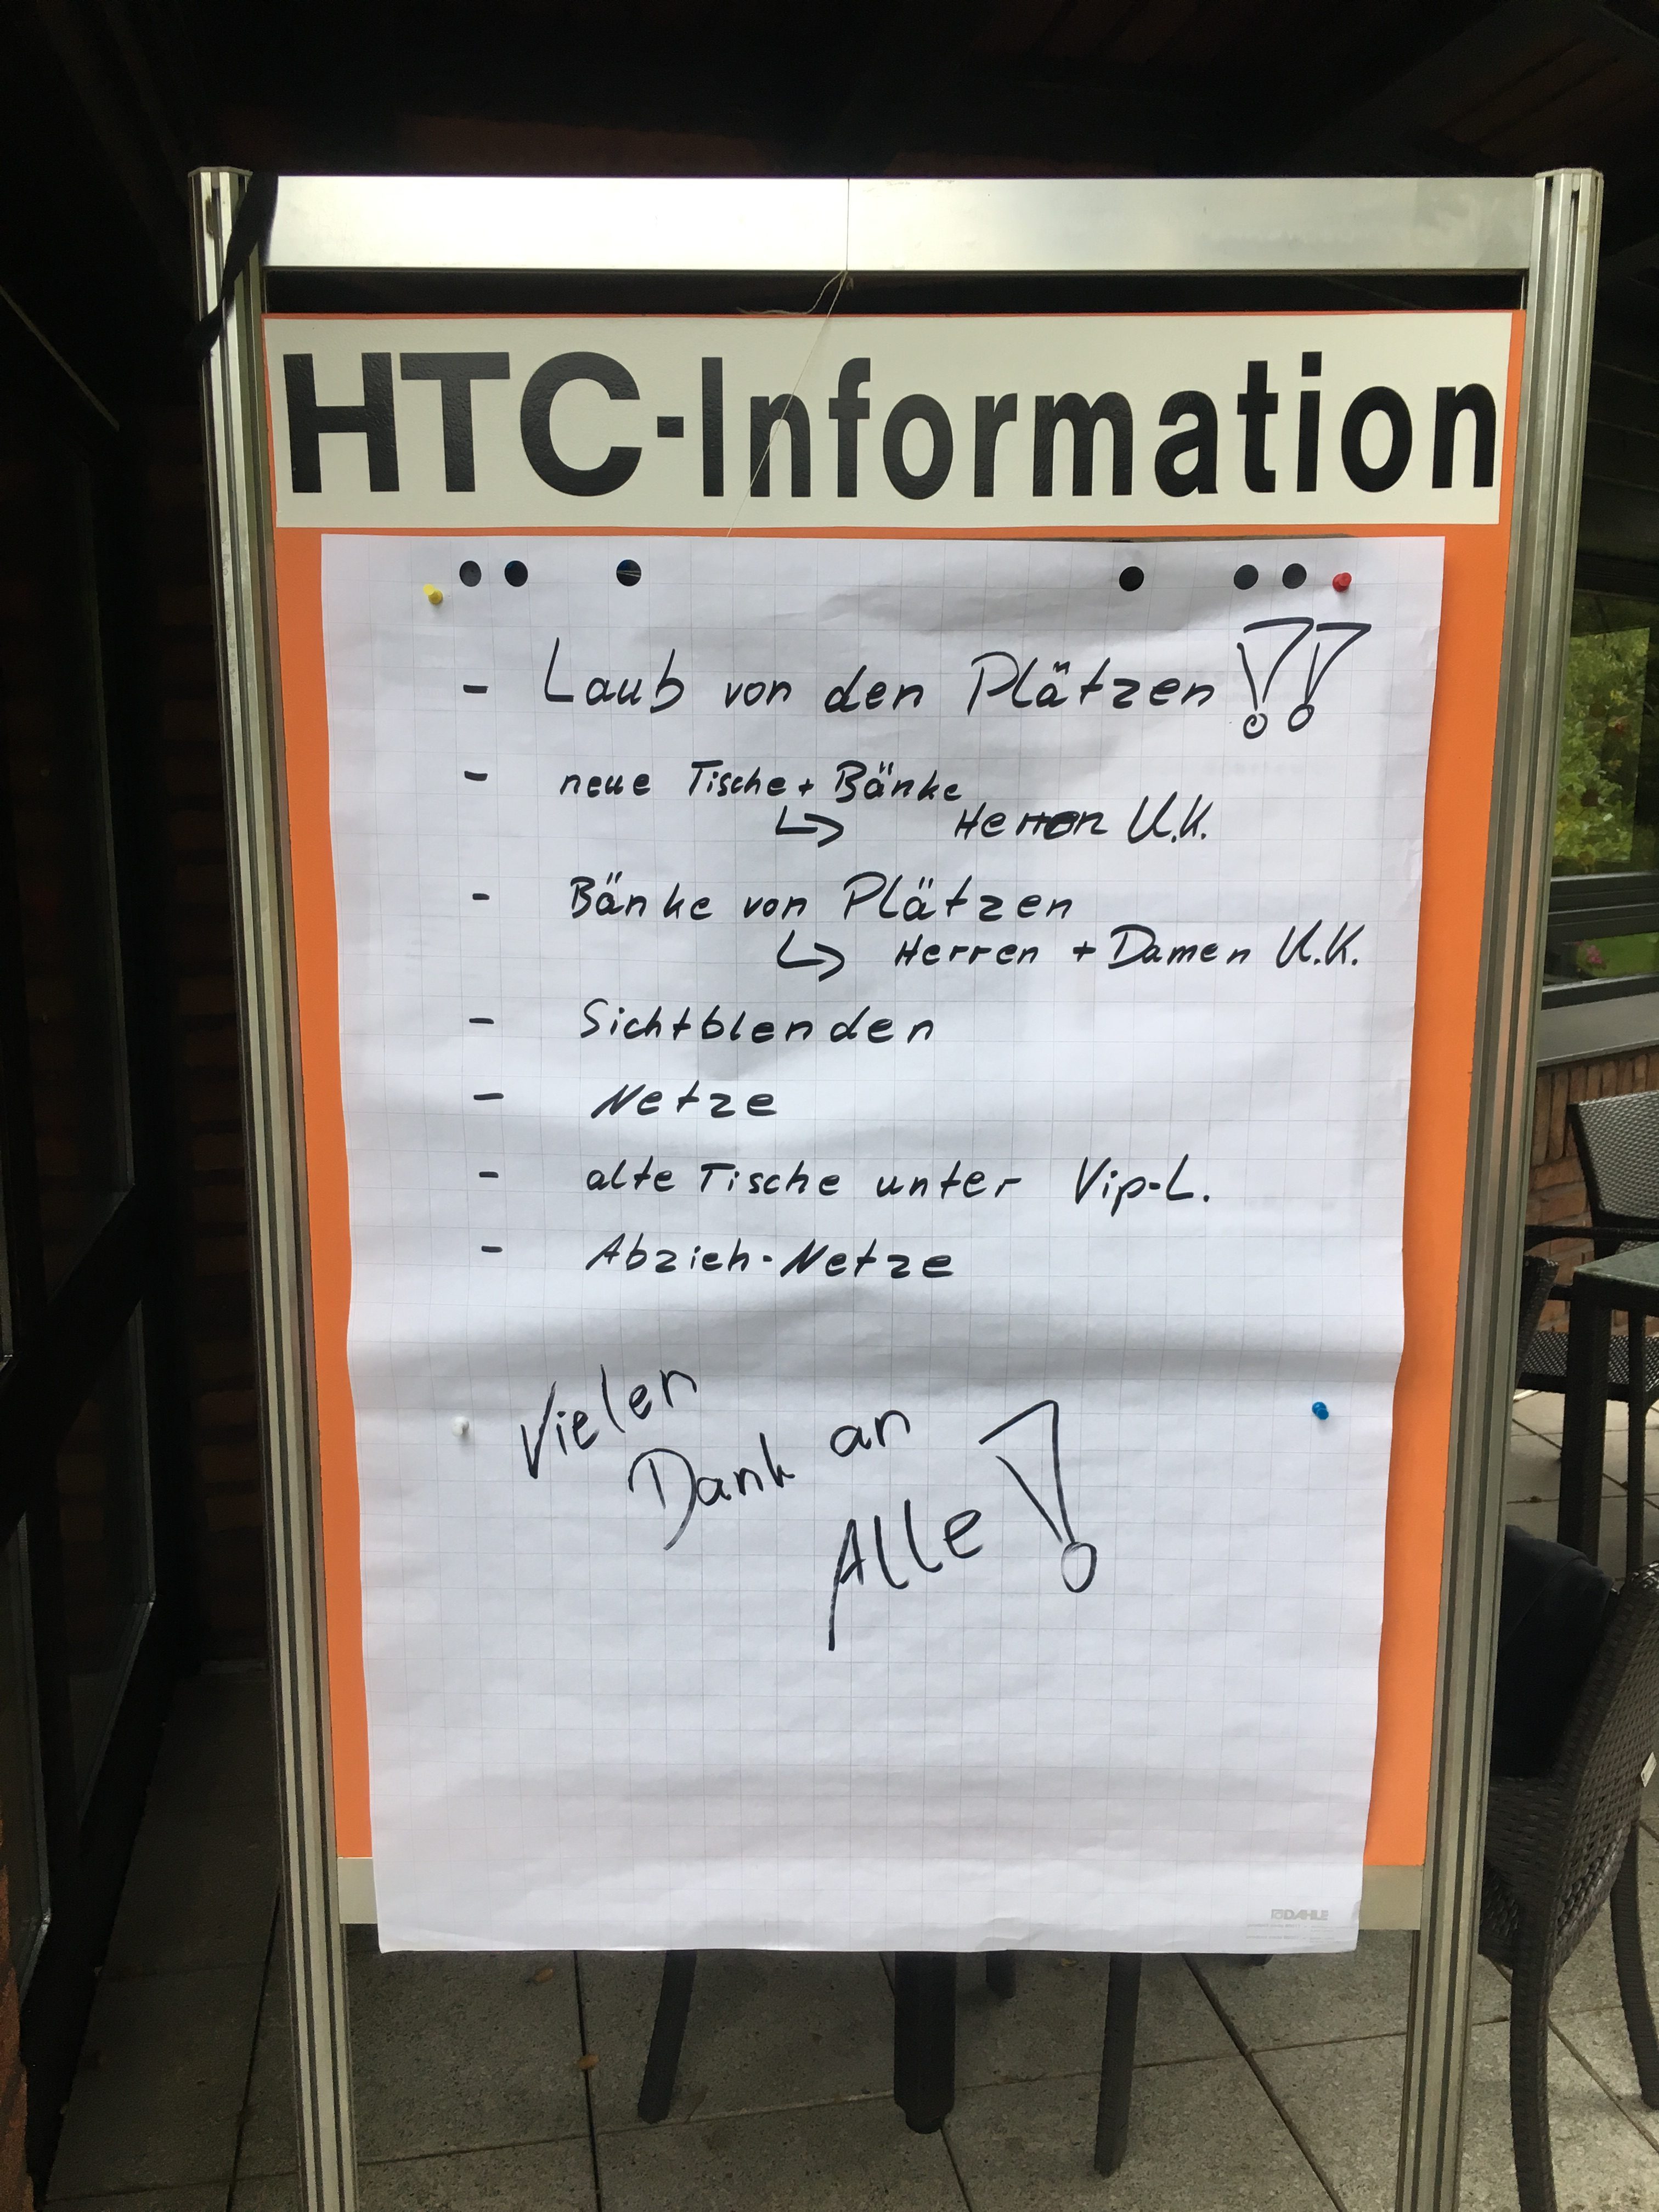 HTC-Information
- Laub von den Plätzen !!
- neue Tische + Bänke
↳ Herren U.K.
- Bänke von Plätzen
↳ Herren + Damen U.K.
- Sichtblenden
- Netze
- alte Tische unter Vip-L.
- Abzieh-Netze
Vielen
Dank an
Alle !
DAHLE